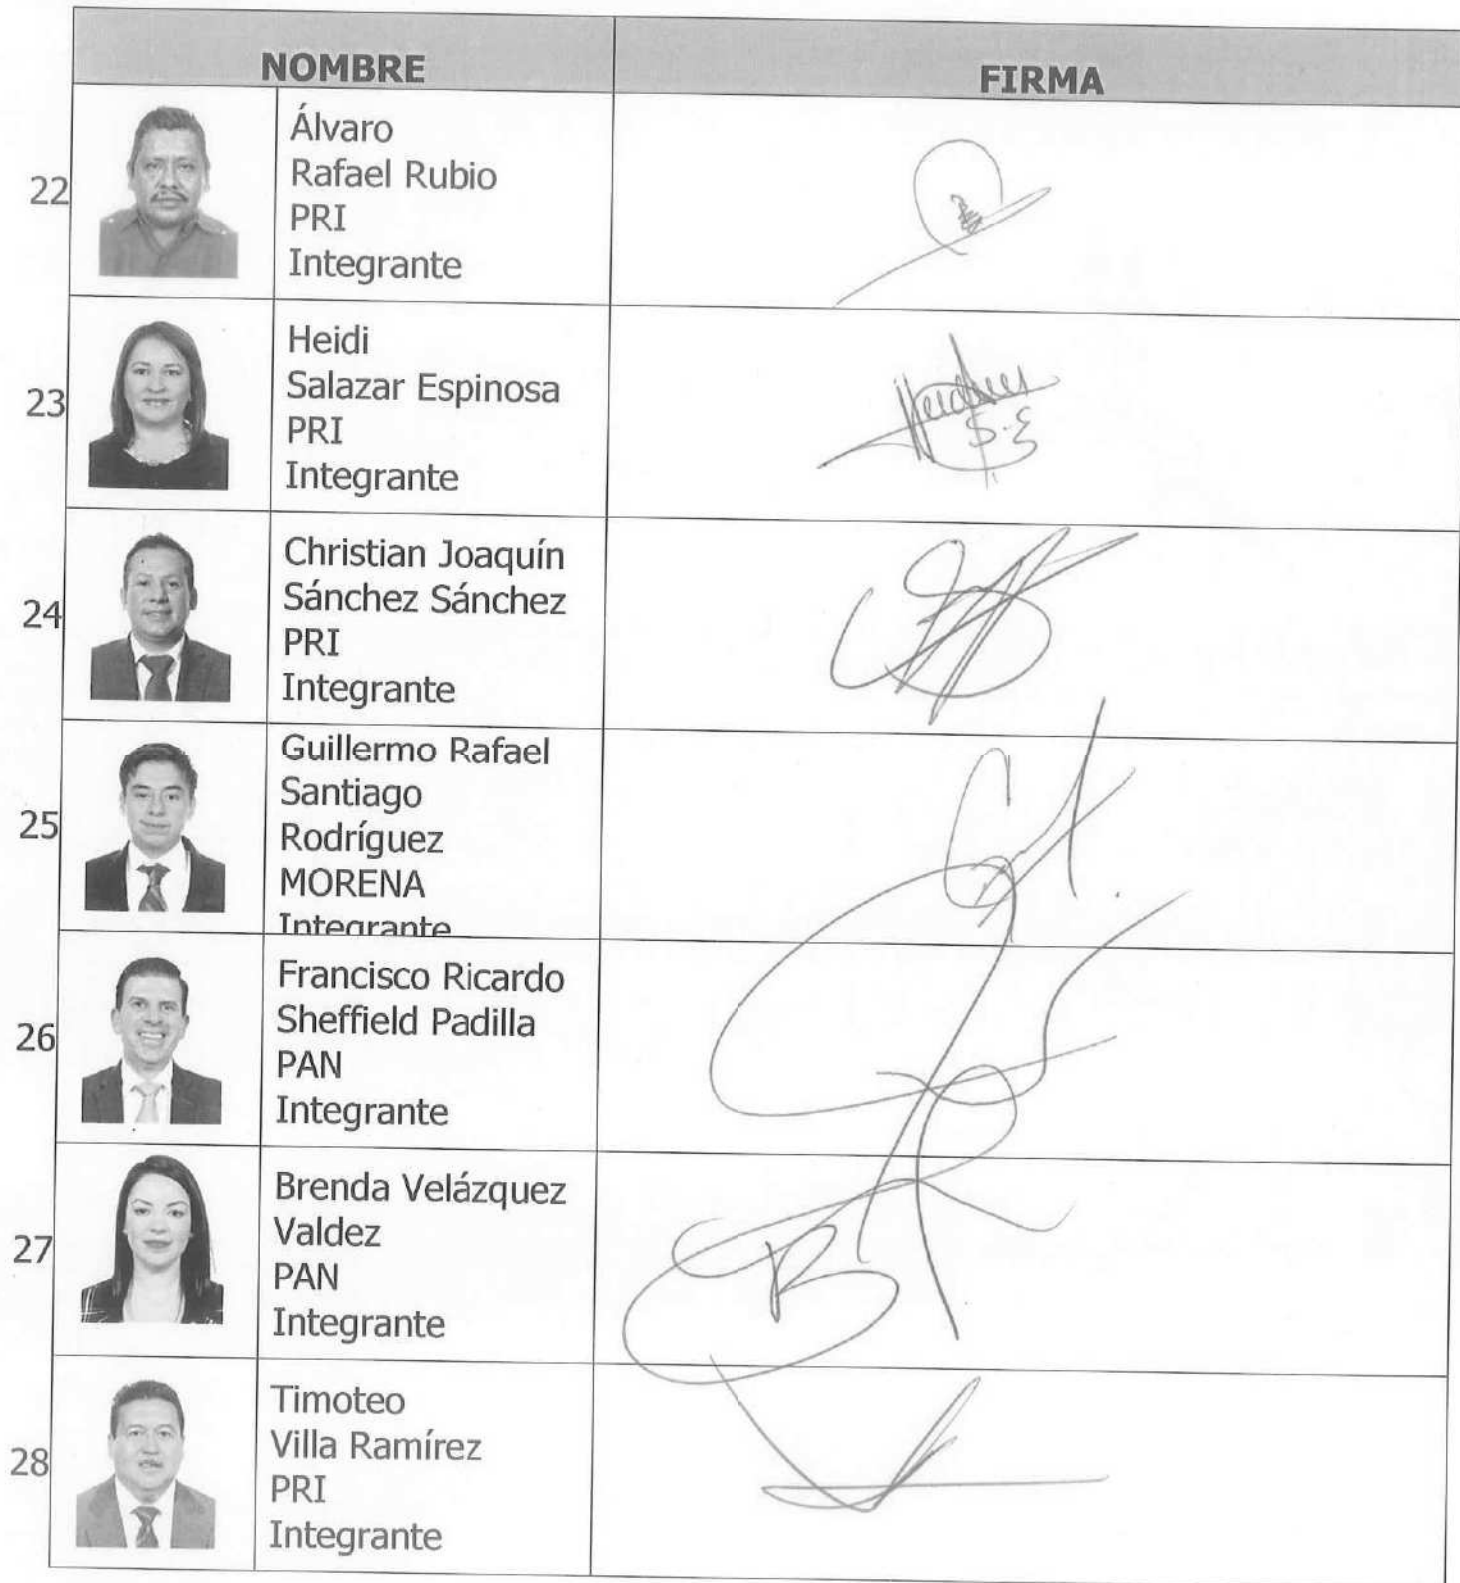 NOMBRE
FIRMA
22
Álvaro
Rafael Rubio
PRI
Integrante
23
Heidi
Salazar Espinosa
PRI
Integrante
S.E
24
Christian Joaquín
Sánchez Sánchez
PRI
Integrante
25
Guillermo Rafael
Santiago
Rodríguez
MORENA
Integrante
26
Francisco Ricardo
Sheffield Padilla
PAN
Integrante
27
Brenda Velázquez
Valdez
PAN
Integrante
28
Timoteo
Villa Ramírez
PRI
Integrante